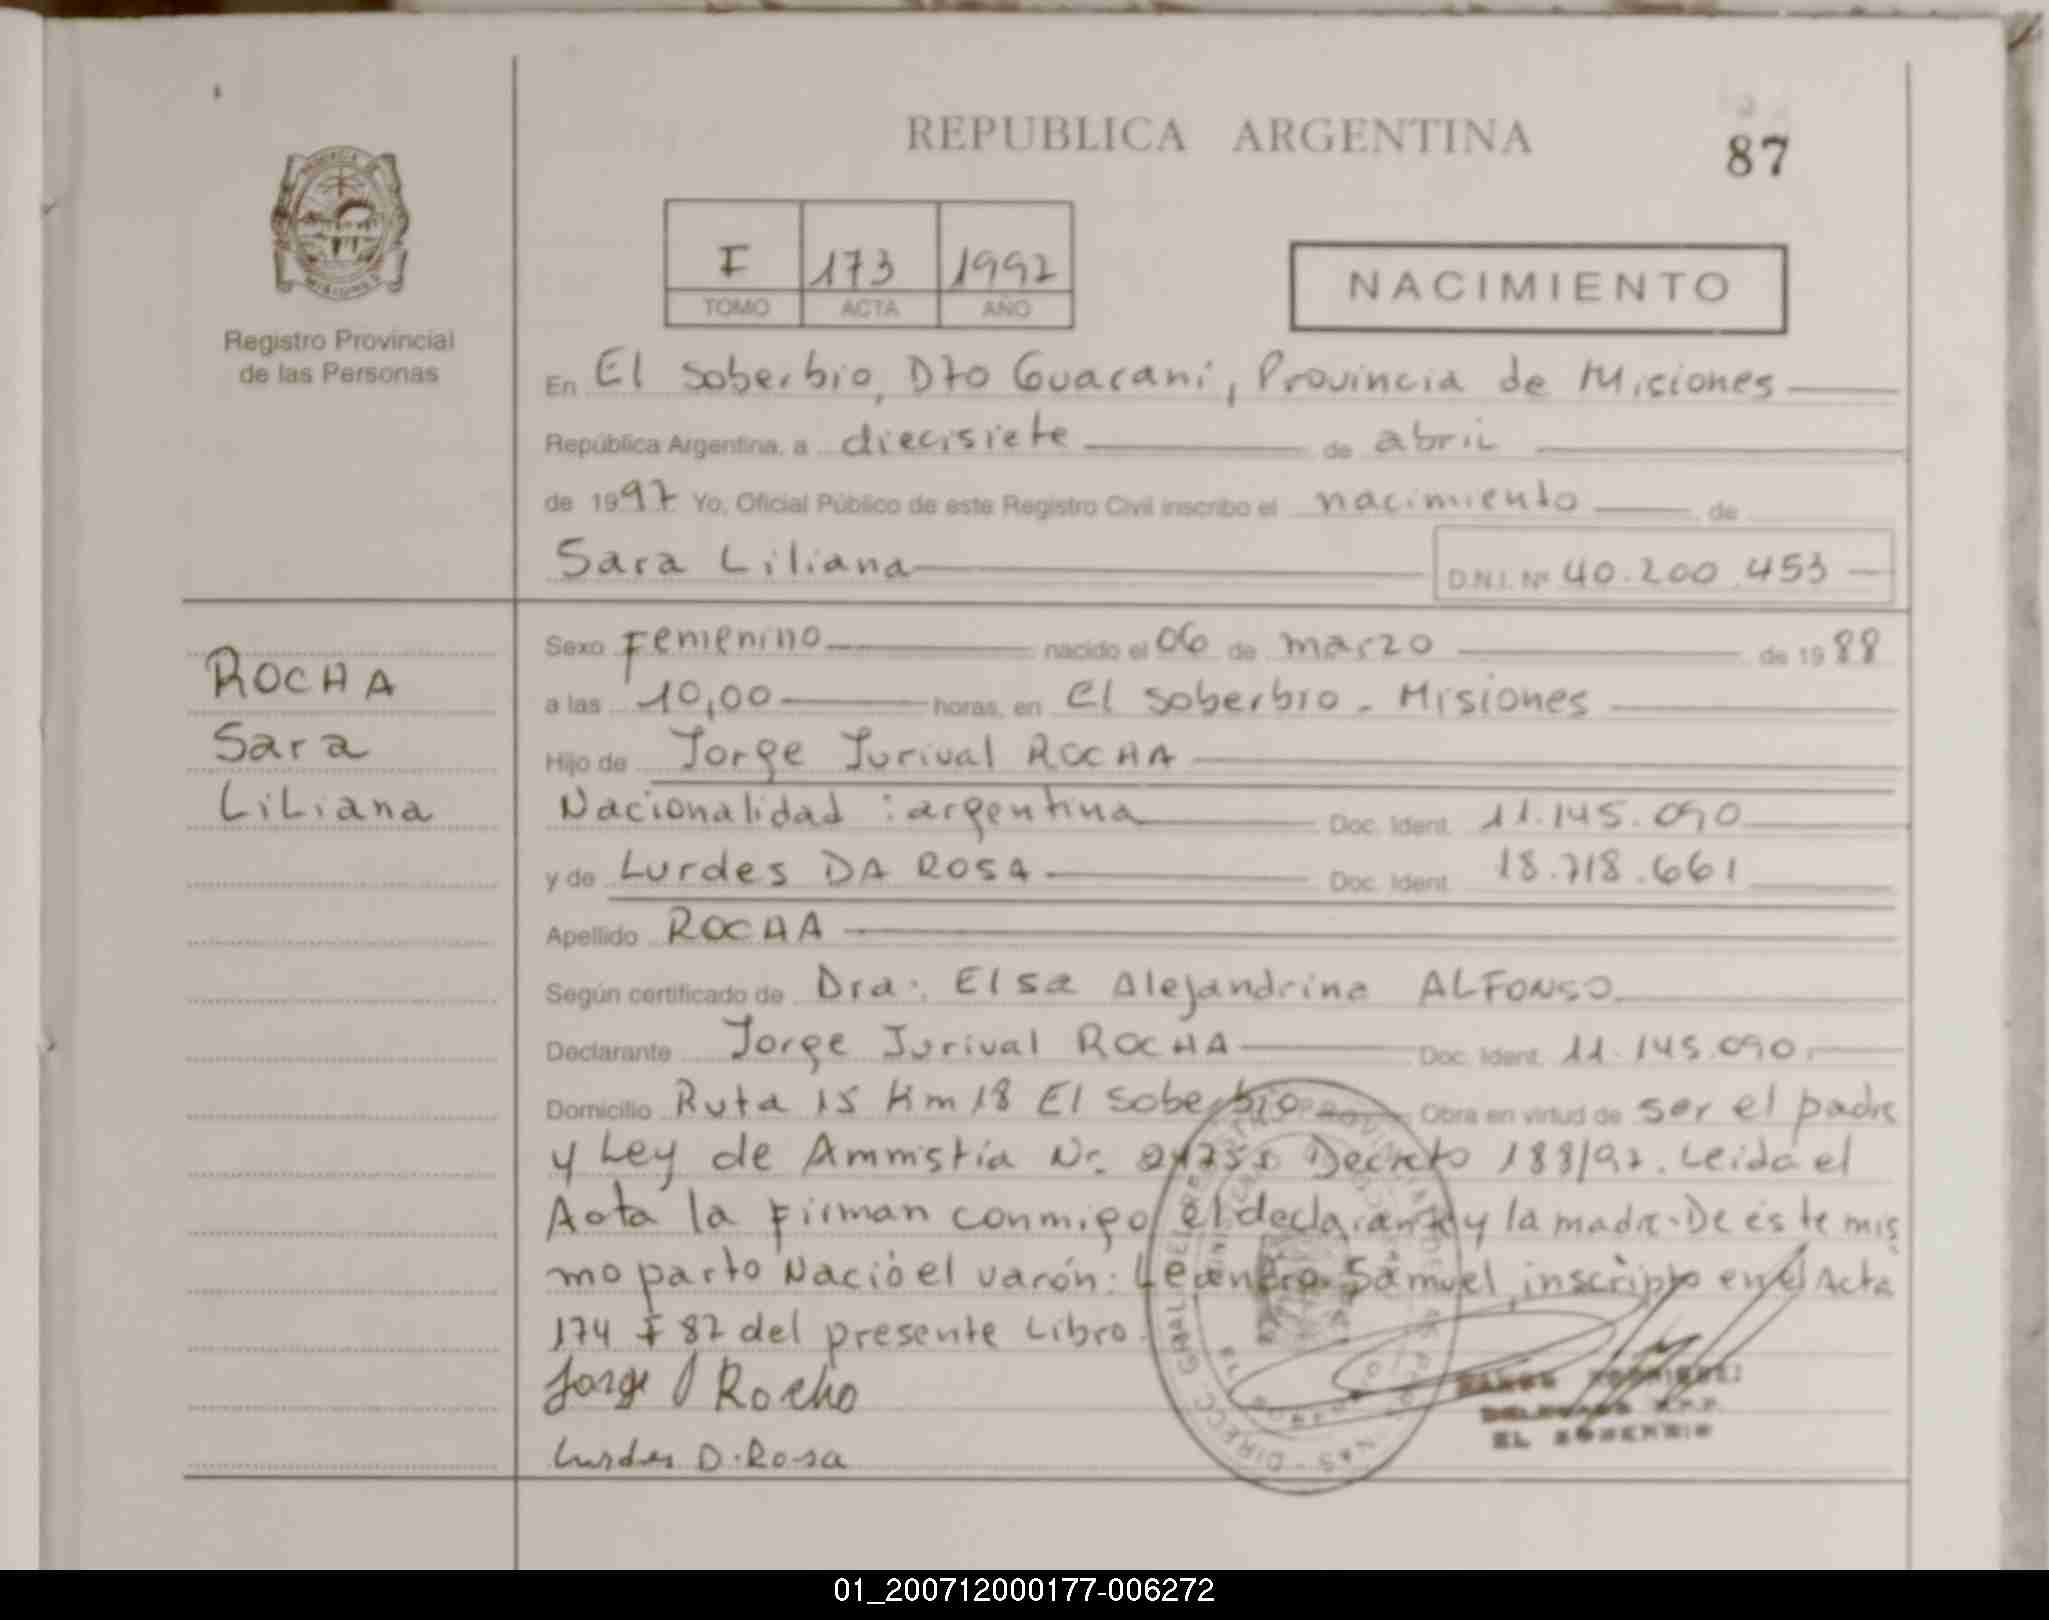 REPUBLICA ARGENTINA
87
I 173 1997
TOMO ACTA AÑO
NACIMIENTO
MISIONES
Registro Provincial
de las Personas
En El Soberbio, Dto Guaraní, Provincia de Misiones
República Argentina, a diecisiete de abril
de 1997 Yo, Oficial Público de este Registro Civil inscribo el nacimiento de
Sara Liliana D.N.I. Nº 40.200.453
ROCHA
Sara
Liliana
Sexo Femenino nacido el 06 de marzo de 1988
a las 10,00 horas, en El Soberbio - Misiones
Hijo de Jorge Jurival ROCHA
Nacionalidad : argentina Doc. Ident. 11.145.090
y de Lurdes DA ROSA Doc. Ident. 18.718.661
Apellido ROCHA
Según certificado de Dra. Elsa Alejandrina ALFONSO
Declarante Jorge Jurival ROCHA Doc. Ident. 11.145.090
Domicilio Ruta 15 Km 18 El Soberbio Obra en virtud de ser el padre
y Ley de Ammistía Nr. Decreto 188/97. Leida el
Acta la Firman conmigo el declarante y la madre. De este mis
mo parto Nació el varón: Samuel, inscripto en el Acta
174 F 87 del presente Libro.
Jorge J Rocha
Lurdes D. Rosa
EL SOBERBIO
01_200712000177-006272